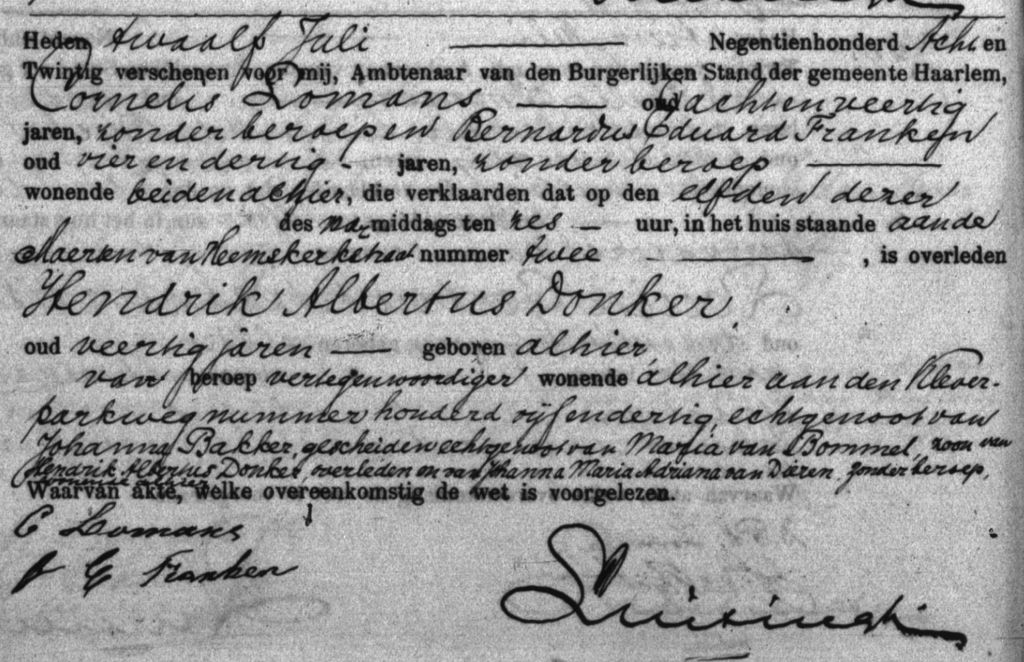 Heden twaalf Juli Negentienhonderd Acht en
Twintig verschenen voor mij, Ambtenaar van den Burgerlijken Stand der gemeente Haarlem,
Cornelis Lomans oud achtenveertig
jaren, zonder beroep en Bernardus Eduard Franken
oud vier en dertig jaren, zonder beroep
wonende beiden alhier, die verklaarden dat op den elfden dezer
des na-middags ten zes uur, in het huis staande aan de
Maerten van Heemskerkstraat nummer twee , is overleden
Hendrik Albertus Donker,
oud veertig jaren geboren alhier,
van beroep vertegenwoordiger wonende alhier aan den Klever-
parkweg nummer honderd vijf en dertig, echtgenoot van
Johanna Bakker, gescheiden echtgenoot van Maria van Bommel, zoon van
Hendrik Albertus Donker, overleden en van Johanna Maria Adriana van Dieren, zonder beroep,
wonende alhier
Waarvan akte, welke overeenkomstig de wet is voorgelezen.
C Lomans
G Franken